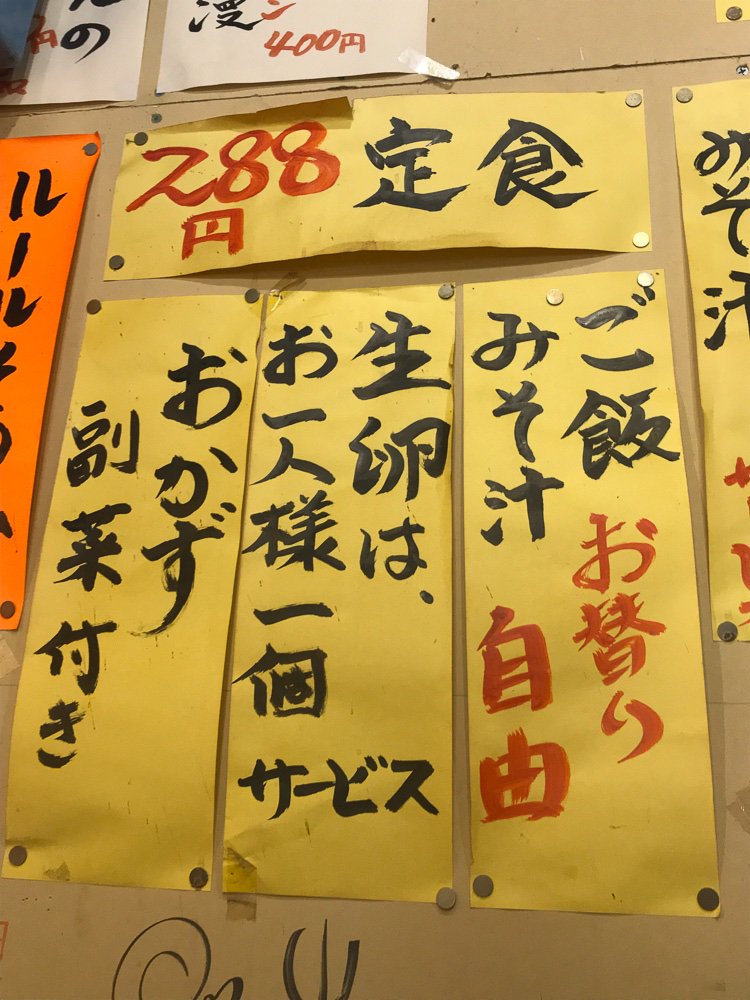 漫
400円
円
の
288円 定食
ご飯 お替り
みそ汁 自由
生卵は、
お一人様一個
サービス
おかず
副菜付き
みそ汁
ルール